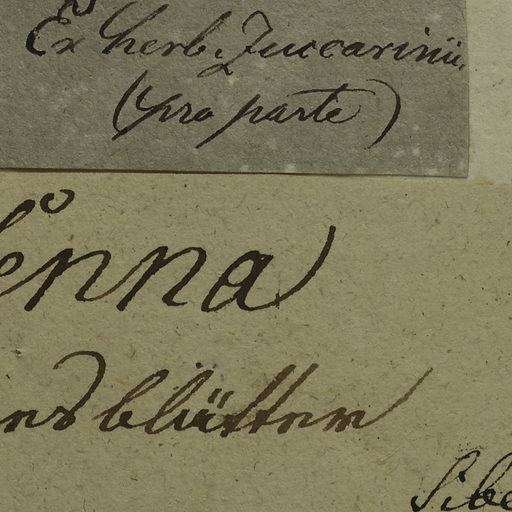 Ex herb. Zuccarinii
(pro parte)
enna)
blättern
Sibe